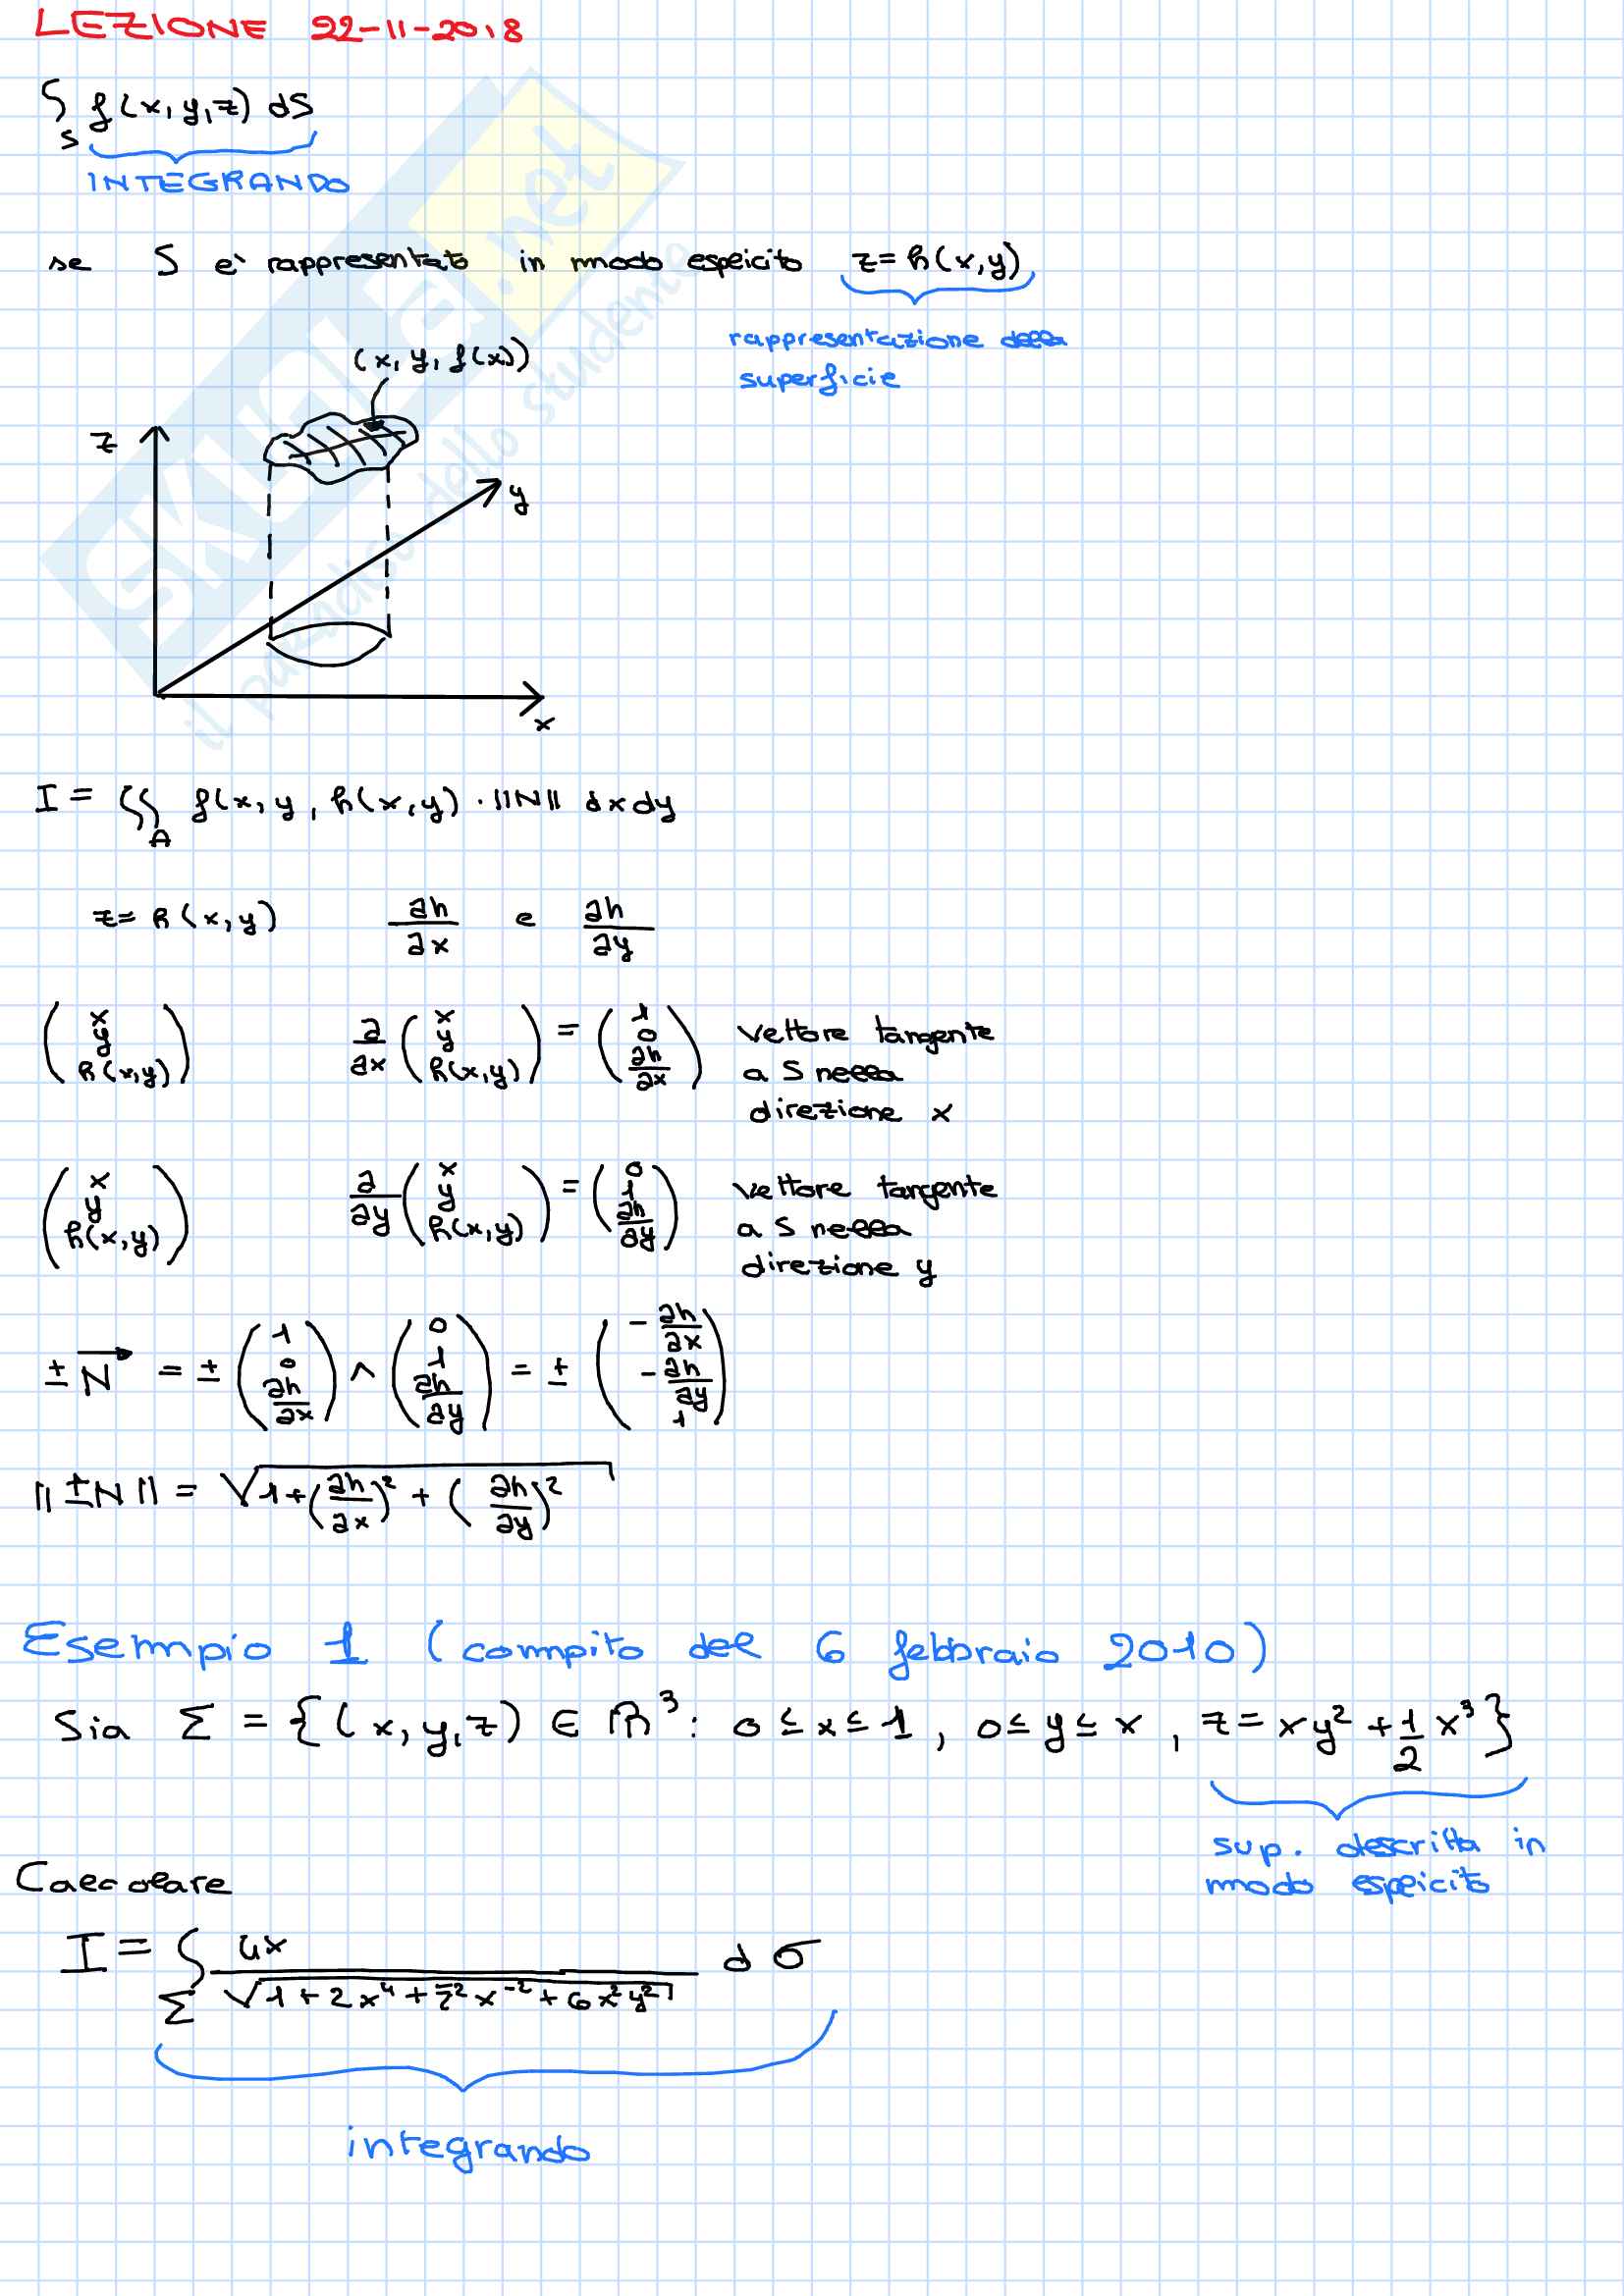 LEZIONE 22-11-2018
∫_S f(x,y,z) dS
INTEGRANDO
se S e' rappresentato in modo esplicito z=h(x,y)
rappresentazione della
superficie
(x, y, f(x))
z
y
x
I = ∬_A f(x, y, h(x,y) · ||N|| dxdy
z = h(x,y) ∂h/∂x e ∂h/∂y
(x y h(x,y)) ∂/∂x (x y h(x,y)) = (1 0 ∂h/∂x) vettore tangente
a S nella
direzione x
(x y h(x,y)) ∂/∂y (x y h(x,y)) = (0 1 ∂h/∂y) vettore tangente
a S nella
direzione y
± N⃗ = ± (1 0 ∂h/∂x) ∧ (0 1 ∂h/∂y) = ± (-∂h/∂x -∂h/∂y 1)
||±N|| = √(1+(∂h/∂x)² + (∂h/∂y)²)
Esempio 1 (compito del 6 febbraio 2010)
Sia Σ = {(x,y,z) ∈ ℝ³: 0 ≤ x ≤ 1, 0 ≤ y ≤ x, z = xy² + 1/2 x³}
sup. descritta in
modo esplicito
Calcolare
I = ∫_Σ 4x / √(1+2x⁴+z²x⁻²+6x²y²) dσ
integrando
SKUOLA.net
il paradiso dello studente